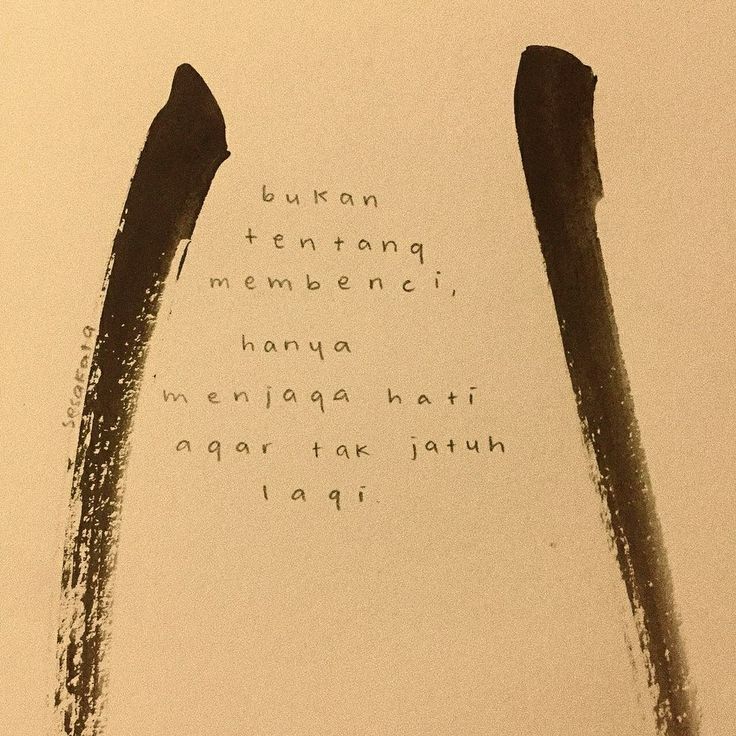 bukan
tentang
membenci,
hanya
menjaga hati
agar tak jatuh
lagi.
sesakata